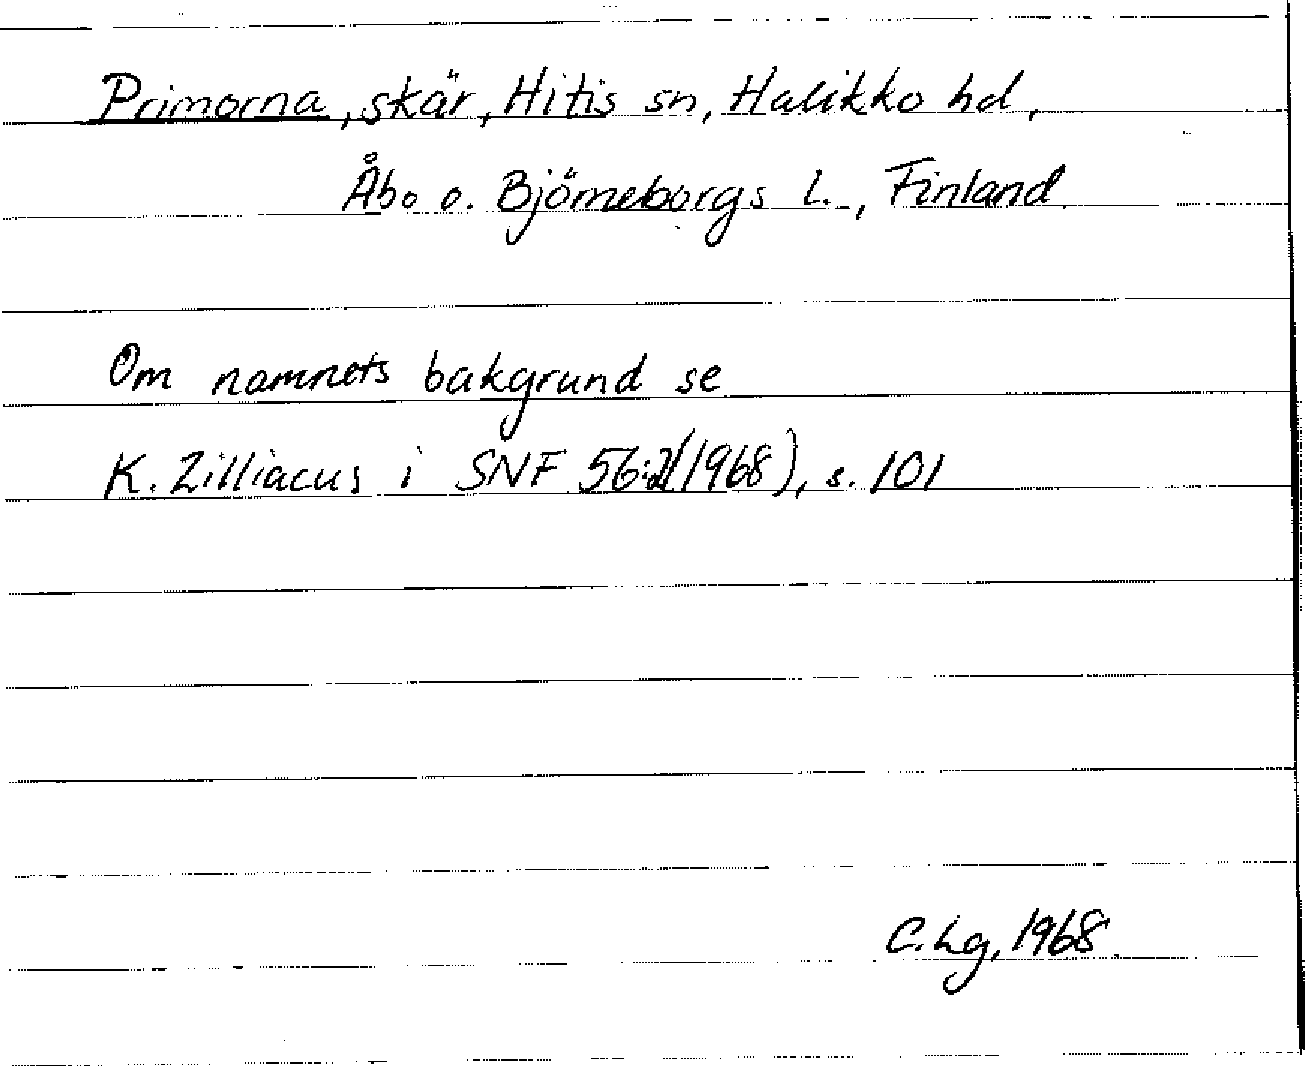 Primorna, skär, Hitis sn, Halikko hd,
Åbo o. Björneborgs l., Finland.
Om namnets bakgrund se
K. Zilliacus i SNF 56:2(1968), s. 101
C. Lg, 1968.